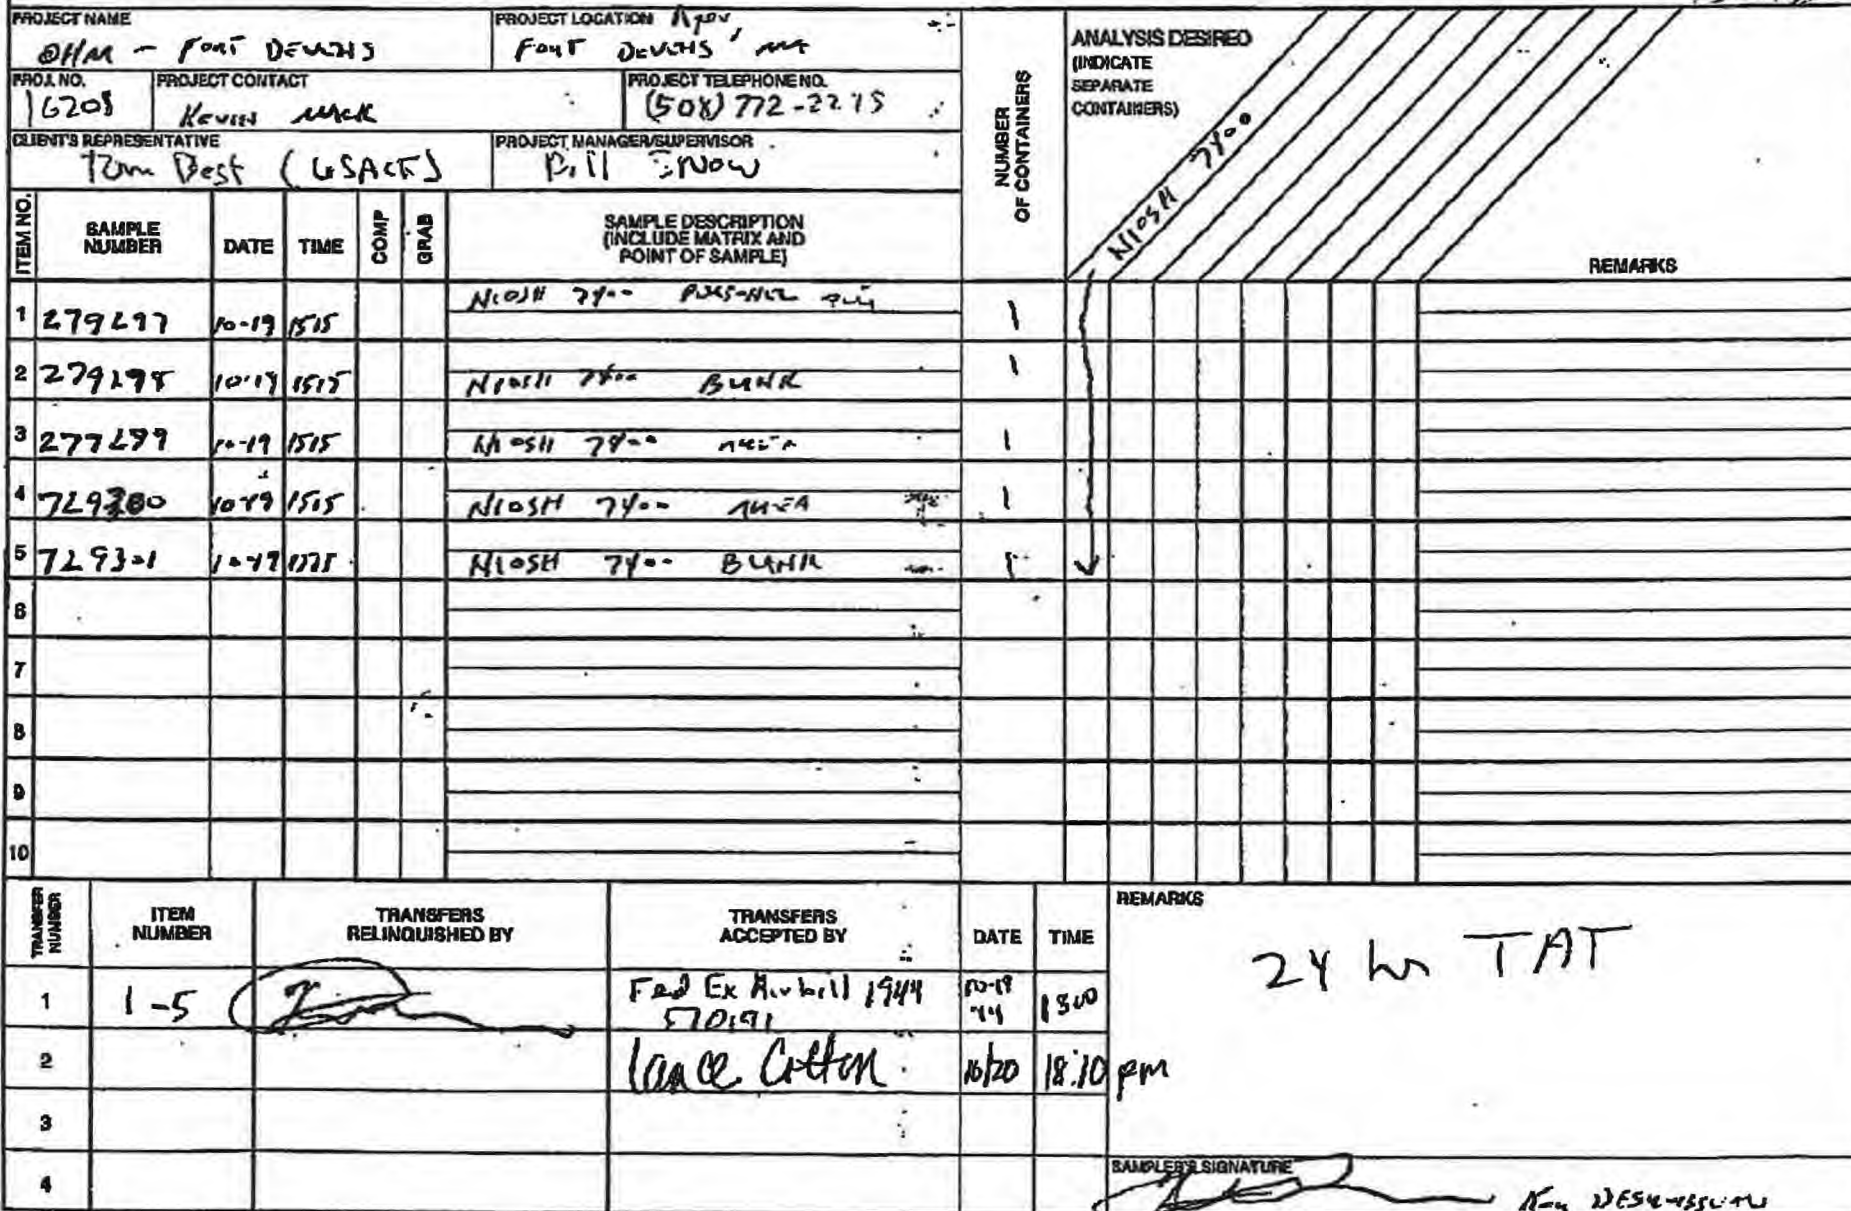 PROJECT NAME
OHM - FORT DEVENS
PROJECT LOCATION
FORT DEVENS, MA
PROJ. NO.
16208
PROJECT CONTACT
KEVIN MACK
PROJECT TELEPHONE NO.
(508) 772-2275
CLIENT'S REPRESENTATIVE
Tom Best (USACE)
PROJECT MANAGER/SUPERVISOR
Bill SNOW
NUMBER
OF CONTAINERS
ANALYSIS DESIRED
(INDICATE
SEPARATE
CONTAINERS)
NIOSH 7400
ITEM NO.
SAMPLE
NUMBER
DATE
TIME
COMP
GRAB
SAMPLE DESCRIPTION
(INCLUDE MATRIX AND
POINT OF SAMPLE)
REMARKS
1 279297 10-19 1515 NIOSH 7400 1
2 279298 10-19 1515 NIOSH 7400 BLANK 1
3 10-19 1515 NIOSH 7400 AREA 1
4 729300 10-19 1515 NIOSH 7400 AREA 1
5 729301 10-19 NIOSH 7400 BLANK 1
6
7
8
9
10
TRANSFER
NUMBER
ITEM
NUMBER
TRANSFERS
RELINQUISHED BY
TRANSFERS
ACCEPTED BY
DATE
TIME
REMARKS
24 hr TAT
1 1-5 Fed Ex Airbill 1944 10-19
570191 94
2 Lance Cotton 10/20 18:10 pm
3
4
SAMPLER'S SIGNATURE